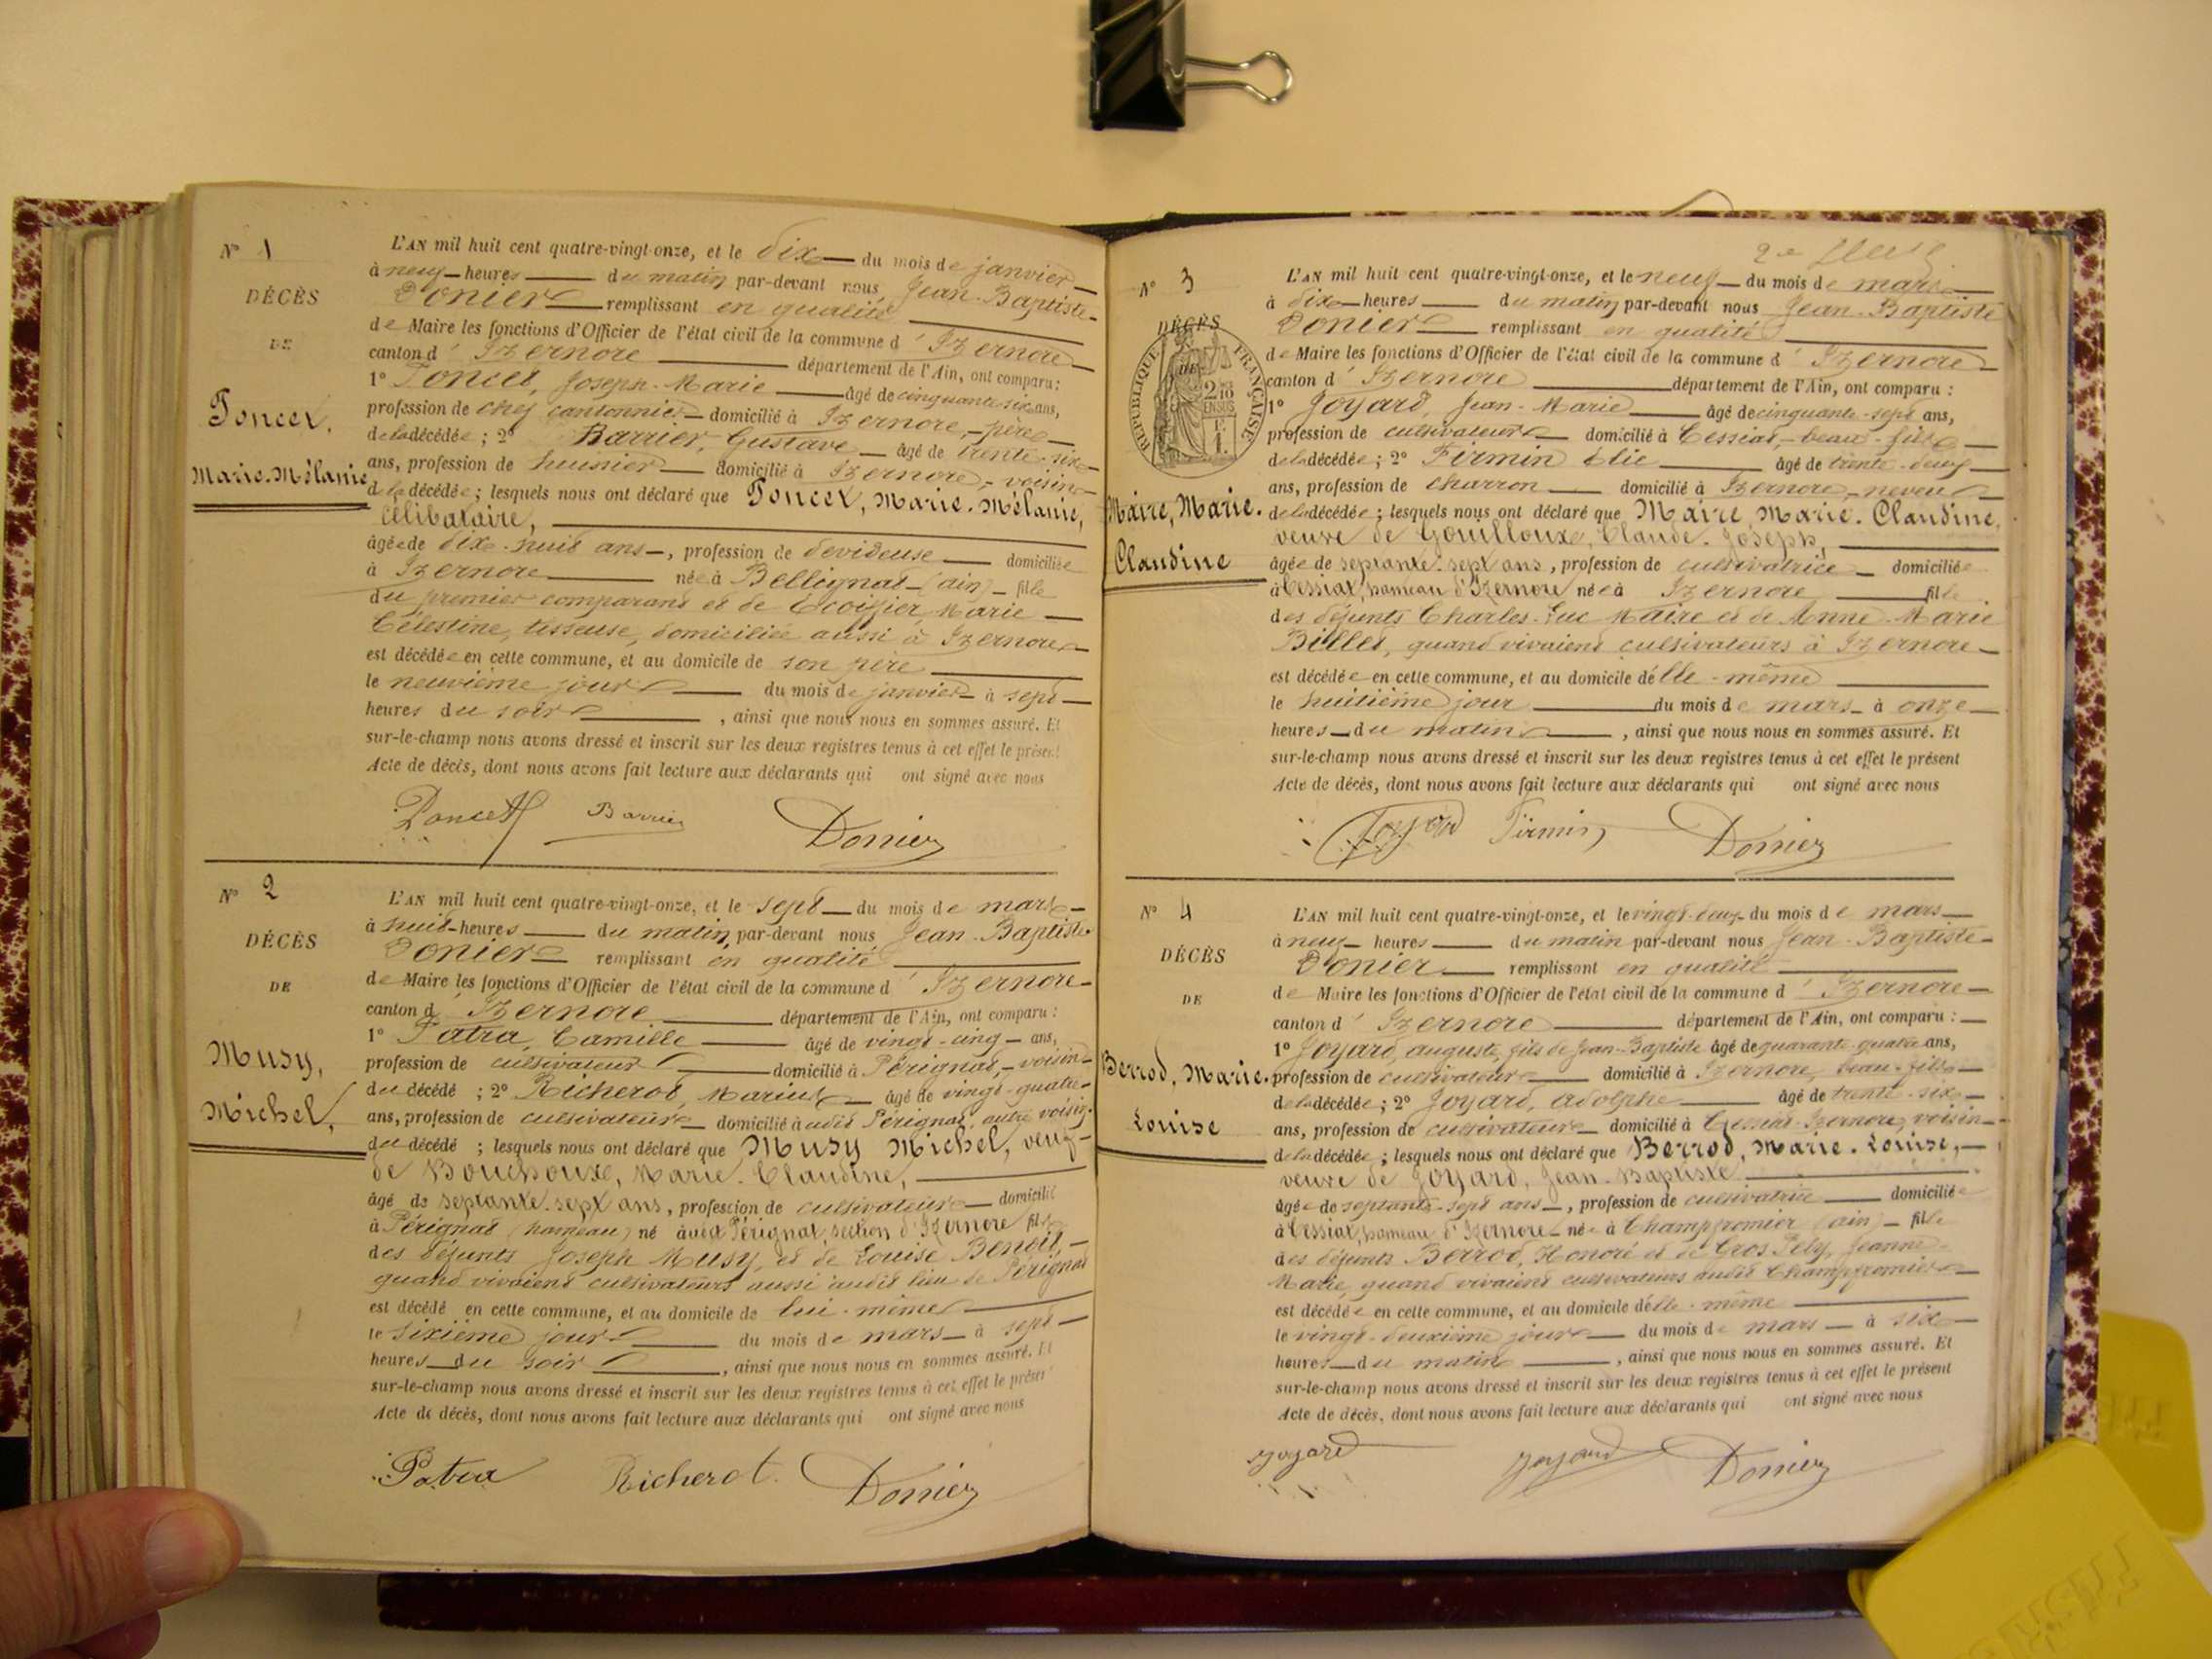 N° 1
DÉCÈS
DE
Poncet,
Marie-Mélanie
L'AN mil huit cent quatre-vingt-onze, et le dix du mois de janvier
à neuf heures du matin par-devant nous Jean-Baptiste
Donier remplissant en qualité
de Maire les fonctions d'Officier de l'état civil de la commune d'Izernore
canton d'Izernore département de l'Ain, ont comparu :
1° Poncet, Joseph-Marie âgé de cinquante-six ans,
profession de chef cantonnier domicilié à Izernore, père
de la décédée ; 2° Barrier, Gustave âgé de trente-six
ans, profession de huissier domicilié à Izernore, voisin
de la décédée ; lesquels nous ont déclaré que Poncet, Marie-Mélanie,
célibataire,
âgée de dix-huit ans, profession de dévideuse domiciliée
à Izernore née à Bellignat (ain) fille
du premier comparant et de Ecoiffier, Marie
Célestine, tisseuse, domiciliée aussi à Izernore
est décédée en cette commune, et au domicile de son père
le neuvième jour du mois de janvier à sept
heures du soir, ainsi que nous nous en sommes assuré. Et
sur-le-champ nous avons dressé et inscrit sur les deux registres tenus à cet effet le présent
Acte de décès, dont nous avons fait lecture aux déclarants qui ont signé avec nous
Poncet Barrier Donier
N° 2
DÉCÈS
DE
Musy,
Michel,
L'AN mil huit cent quatre-vingt-onze, et le sept du mois de mars
à huit heures du matin par-devant nous Jean-Baptiste
Donier remplissant en qualité
de Maire les fonctions d'Officier de l'état civil de la commune d'Izernore
canton d'Izernore département de l'Ain, ont comparu :
1° Patra, Camille âgé de vingt-cinq ans,
profession de cultivateur domicilié à Pérignat, voisin
du décédé ; 2° Richerot, Marius âgé de vingt-quatre
ans, profession de cultivateur domicilié à audit Pérignat, autre voisin
du décédé ; lesquels nous ont déclaré que Musy Michel, veuf
de Bouchoux, Marie-Claudine,
âgé de septante-sept ans, profession de cultivateur domicilié
à Pérignat (hameau) né à Pérignat, section d'Izernore fils
des défunts Joseph Musy, et de Louise Benoît
quand vivaient cultivateurs aussi audit lieu de Pérignat
est décédé en cette commune, et au domicile de lui-même
le sixième jour du mois de mars à sept
heures du soir, ainsi que nous nous en sommes assuré. Et
sur-le-champ nous avons dressé et inscrit sur les deux registres tenus à cet effet le présent
Acte de décès, dont nous avons fait lecture aux déclarants qui ont signé avec nous
Patra Richerot. Donier
N° 3
DÉCÈS
DE
RÉPUBLIQUE FRANÇAISE
Maire, Marie-
Claudine
L'AN mil huit cent quatre-vingt-onze, et le neuf du mois de mars
à dix heures du matin par-devant nous Jean-Baptiste
Donier remplissant en qualité
de Maire les fonctions d'Officier de l'état civil de la commune d'Izernore
canton d'Izernore département de l'Ain, ont comparu :
1° Joyard, Jean-Marie âgé de cinquante-sept ans,
profession de cultivateur domicilié à Cessiat, beau-fils
de la décédée ; 2° Firmin Elie âgé de trente-deux
ans, profession de charron domicilié à Izernore, neveu
de la décédée ; lesquels nous ont déclaré que Maire, Marie-Claudine,
veuve de Gouilloux, Claude-Joseph,
âgée de septante-sept ans, profession de cultivatrice domiciliée
à Cessiat, hameau d'Izernore née à Izernore fille
des défunts Charles-Luc Maire et de Anne-Marie
Billet, quand vivaient cultivateurs à Izernore
est décédée en cette commune, et au domicile d'elle-même
le huitième jour du mois de mars à onze
heures du matin, ainsi que nous nous en sommes assuré. Et
sur-le-champ nous avons dressé et inscrit sur les deux registres tenus à cet effet le présent
Acte de décès, dont nous avons fait lecture aux déclarants qui ont signé avec nous
Joyard Firmin Donier
N° 4
DÉCÈS
DE
Berrod, Marie-
Louise
L'AN mil huit cent quatre-vingt-onze, et le vingt-deux du mois de mars
à neuf heures du matin par-devant nous Jean-Baptiste
Donier remplissant en qualité
de Maire les fonctions d'Officier de l'état civil de la commune d'Izernore
canton d'Izernore département de l'Ain, ont comparu :
1° Joyard, auguste, fils de Jean-Baptiste âgé de quarante-quatre ans,
profession de cultivateur domicilié à Izernore, beau-fils
de la décédée ; 2° Joyard, Adolphe âgé de trente-six
ans, profession de cultivateur domicilié à Cessiat-Izernore, voisin
de la décédée ; lesquels nous ont déclaré que Berrod, Marie-Louise,
veuve de Joyard, Jean-Baptiste
âgée de septante-sept ans, profession de cultivatrice domiciliée
à Cessiat, hameau d'Izernore née à Champfromier (ain) fille
des défunts Berrod, Honoré et de Gros Pely, Jeanne-
Marie, quand vivaient cultivateurs audit Champfromier
est décédée en cette commune, et au domicile d'elle-même
le vingt-deuxième jour du mois de mars à six
heures du matin, ainsi que nous nous en sommes assuré. Et
sur-le-champ nous avons dressé et inscrit sur les deux registres tenus à cet effet le présent
Acte de décès, dont nous avons fait lecture aux déclarants qui ont signé avec nous
Joyard Joyard Donier